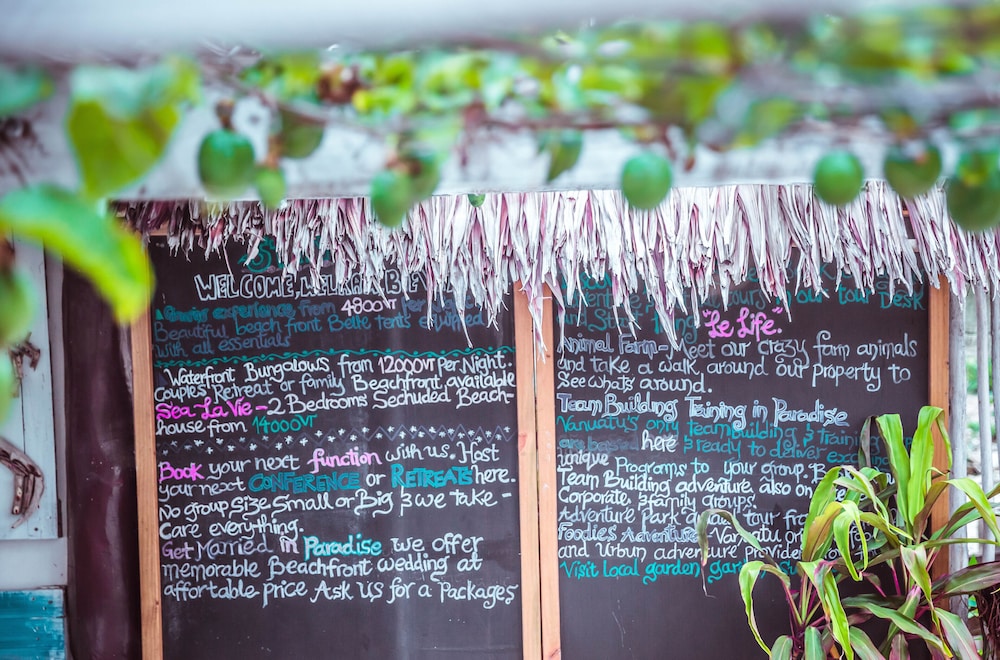 WELCOME, WELKAM, BE
experience from 4800VT
Beautiful beach front Belle tents equipped
with all essentials
Waterfront Bungalows from 12000VT per Night.
Couples Retreat or family Beachfront available
Sea-La Vie - 2 Bedrooms Sechuded Beach-
house from 14000VT
Book your next function with us. Host
your next CONFERENCE or RETREATS here
No group size Small or Big & we take -
Care everything.
Get Married in Paradise we offer
memorable Beachfront wedding at
affortable price Ask Us for a Packages
our Tour Desk
"Le Life"
Animal Farm - Meet our crazy farm animals
and take a walk, around our property to
see whats around.
Team Building Training in Paradise
Vanuatu's only team building & training
are based here & ready to deliver
unique Programs to your group.
Team Building adventure also on
Corporate & family groups
Adventure Park and tour
Foodies Adventure - Vanuatu
and Urban adventure Provide
Visit local garden